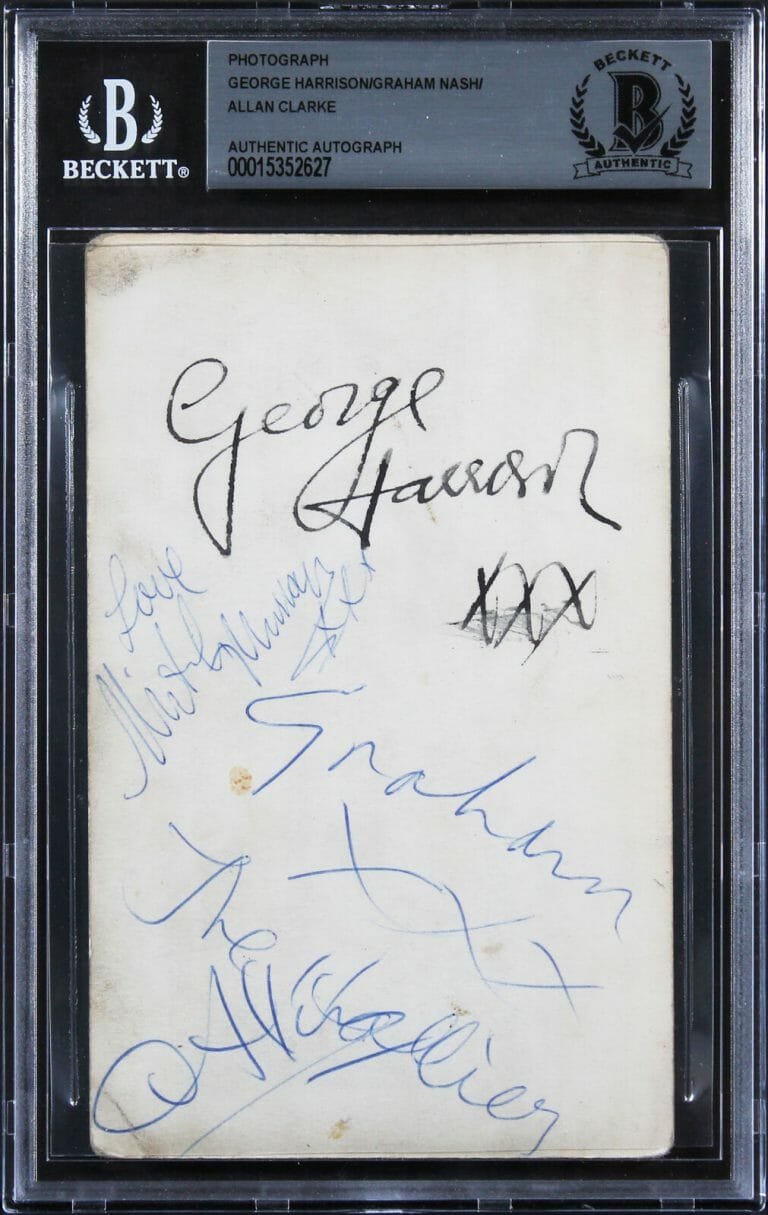 B
BECKETT®
PHOTOGRAPH
GEORGE HARRISON/GRAHAM NASH/
ALLAN CLARKE
AUTHENTIC AUTOGRAPH
00015352627
BECKETT
B
AUTHENTIC
George
Harrison
XXX
Love
Murray
xxx
Graham
XXX
The
Hollies